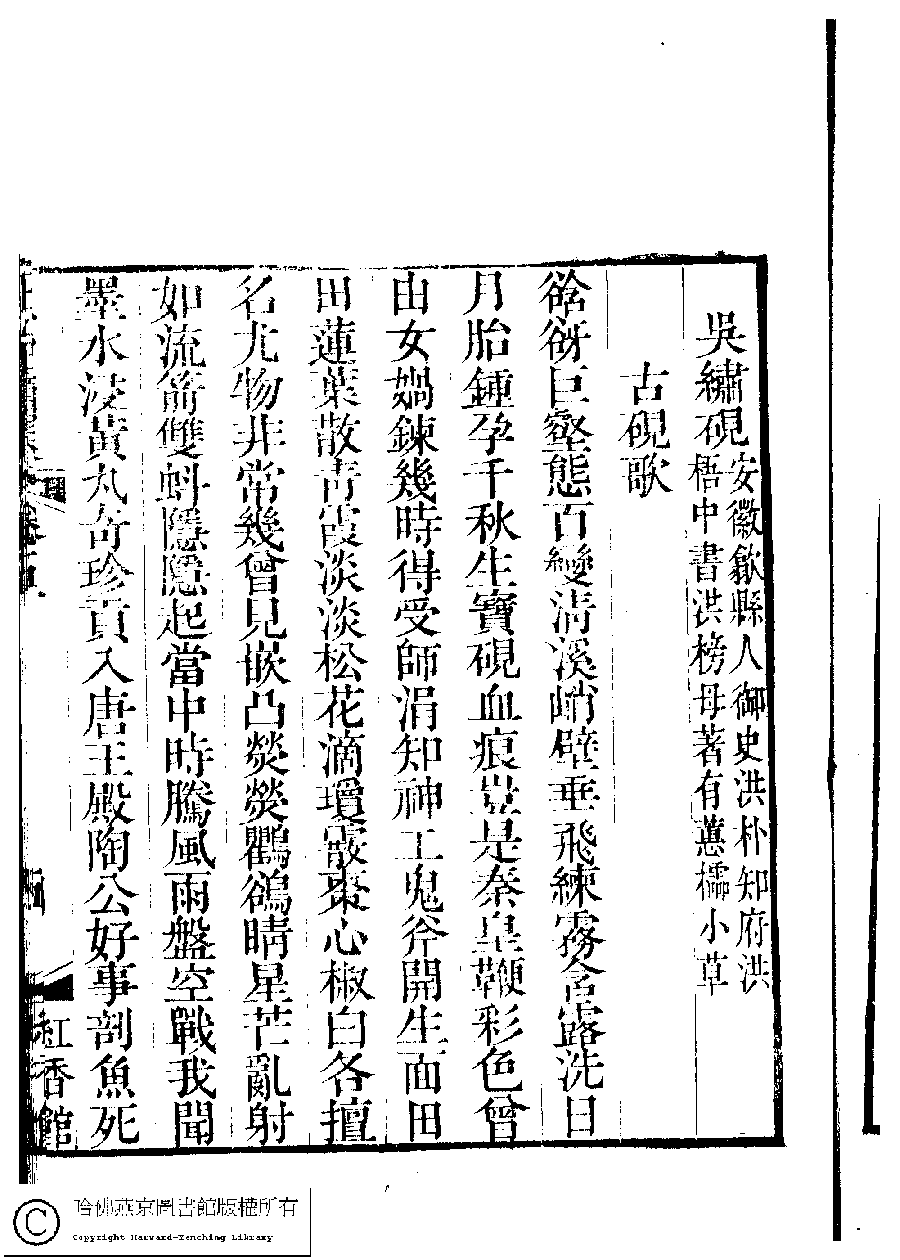 吳繡硯 安徽歙縣人御史洪朴知府洪
梧中書洪榜母著有蕙櫺小草
古硯歌
谽谺巨壑態百變淸溪峭壁垂飛練霧含露洗日
月胎鍾孕千秋生寶硯血痕豈是秦皇鞭彩色曾
由女媧鍊幾時得受師涓知神工鬼斧開生面田
田蓮葉散靑霞淡淡松花滴瓊霰棗心椒白各擅
名尤物非常幾曾見嵌凸熒熒鸜鵒晴星芒亂射
如流箭雙蚪隱隱起當中時騰風雨盤空戰我聞
墨水淩黃丸奇珍貢入唐王殿陶公好事剖魚死
紅香館
哈佛燕京圖書館版權所有
Copyright Harvard-Yenching Library